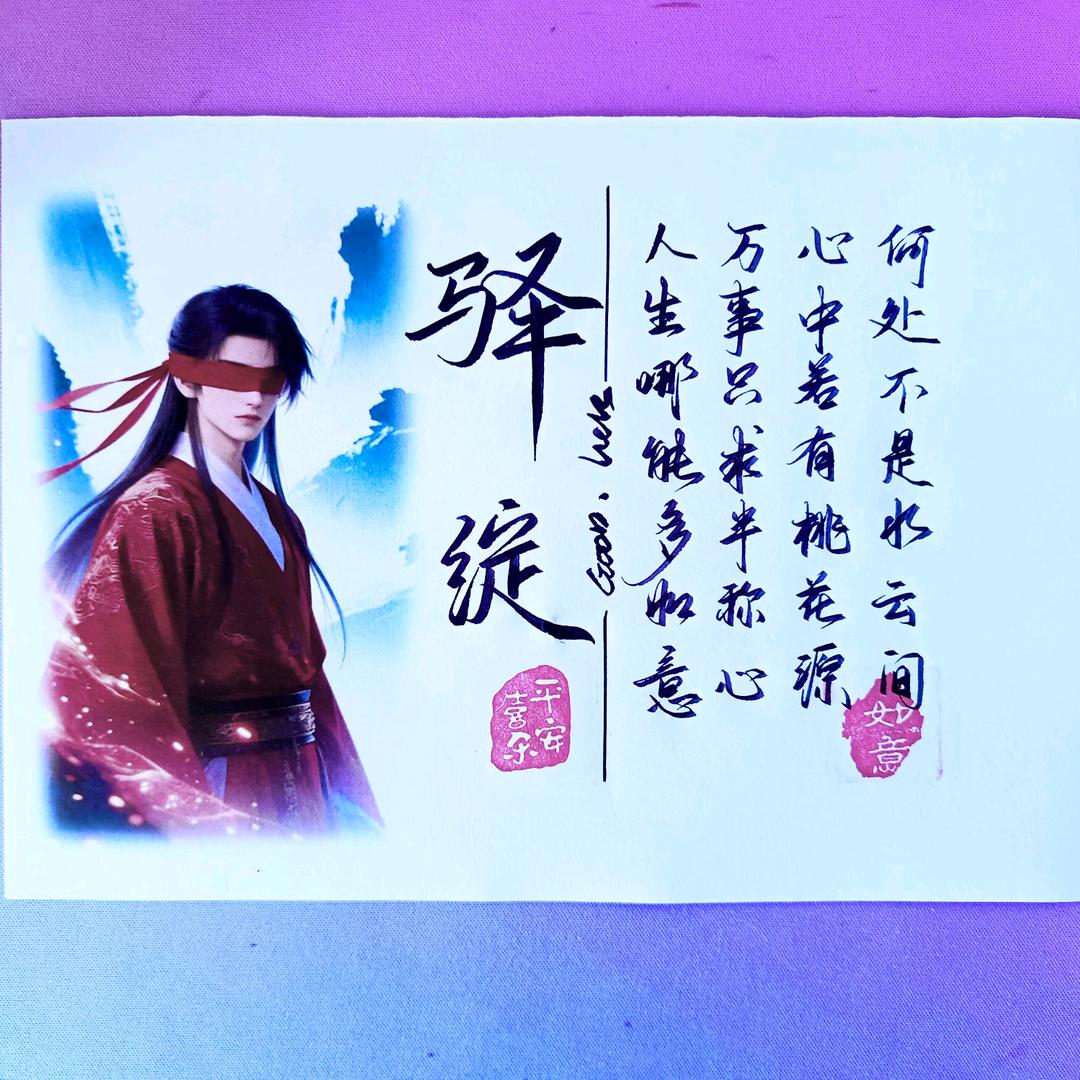 驿绽
Good. luck
人生哪能多如意
万事只求半称心
心中若有桃花源
何处不是水云间
平安
喜乐
如意